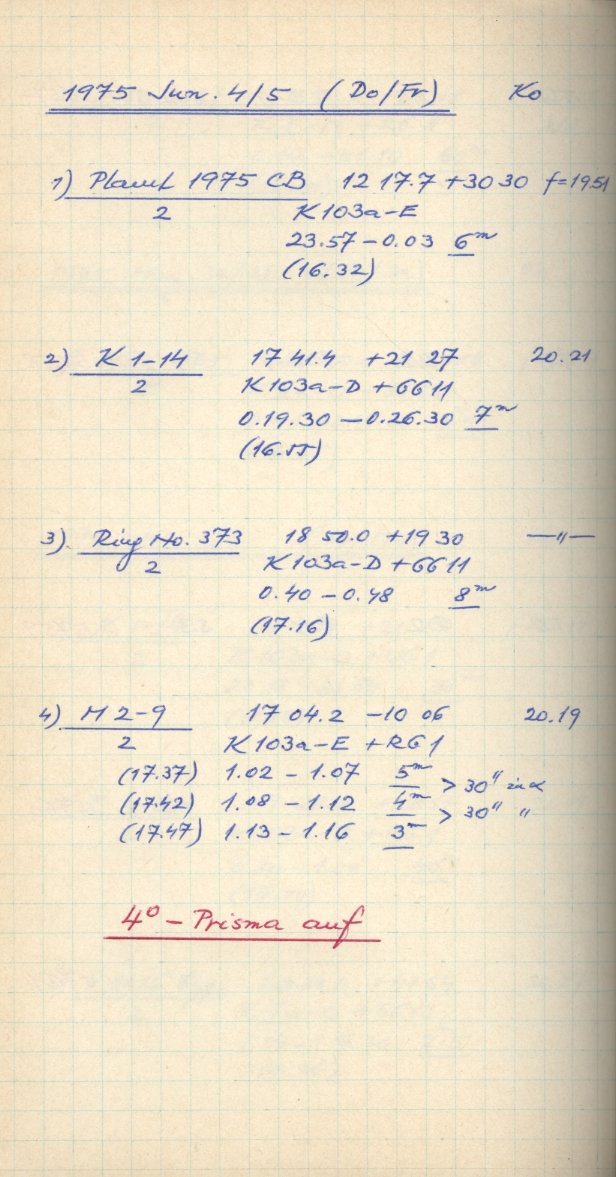 1975 Jun. 4/5 (Do/Fr) Ko
1) Planet 1975 CB 12 17.7 +30 30 f=19.51
2 K103a-E
23.57 - 0.03 6ᵐ
(16.32)
2) K 1-14 17 41.4 +21 27 20.21
2 K103a-D + GG11
0.19.30 - 0.26.30 7ᵐ
(16.55)
3) Ring No. 373 18 50.0 +19 30 —"—
2 K103a-D + GG11
0.40 - 0.48 8ᵐ
(17.16)
4) M 2-9 17 04.2 -10 06 20.19
2 K103a-E + RG1
(17.37) 1.02 - 1.07 5ᵐ
> 30" in α
(17.42) 1.08 - 1.12 4ᵐ
> 30" "
(17.47) 1.13 - 1.16 3ᵐ
4° - Prisma auf